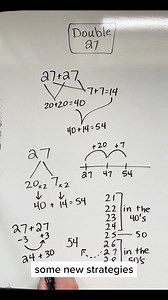 Double
27
27+27
7+7=14
20+20=40
40+14=54
27
20x2 7x2
40+14=54
+20 +7
27 47 54
21
22
23
24
25 - 50
26
27
in the
40's
in the
50's
27+27
-3 +3
24+30
54
some new strategies